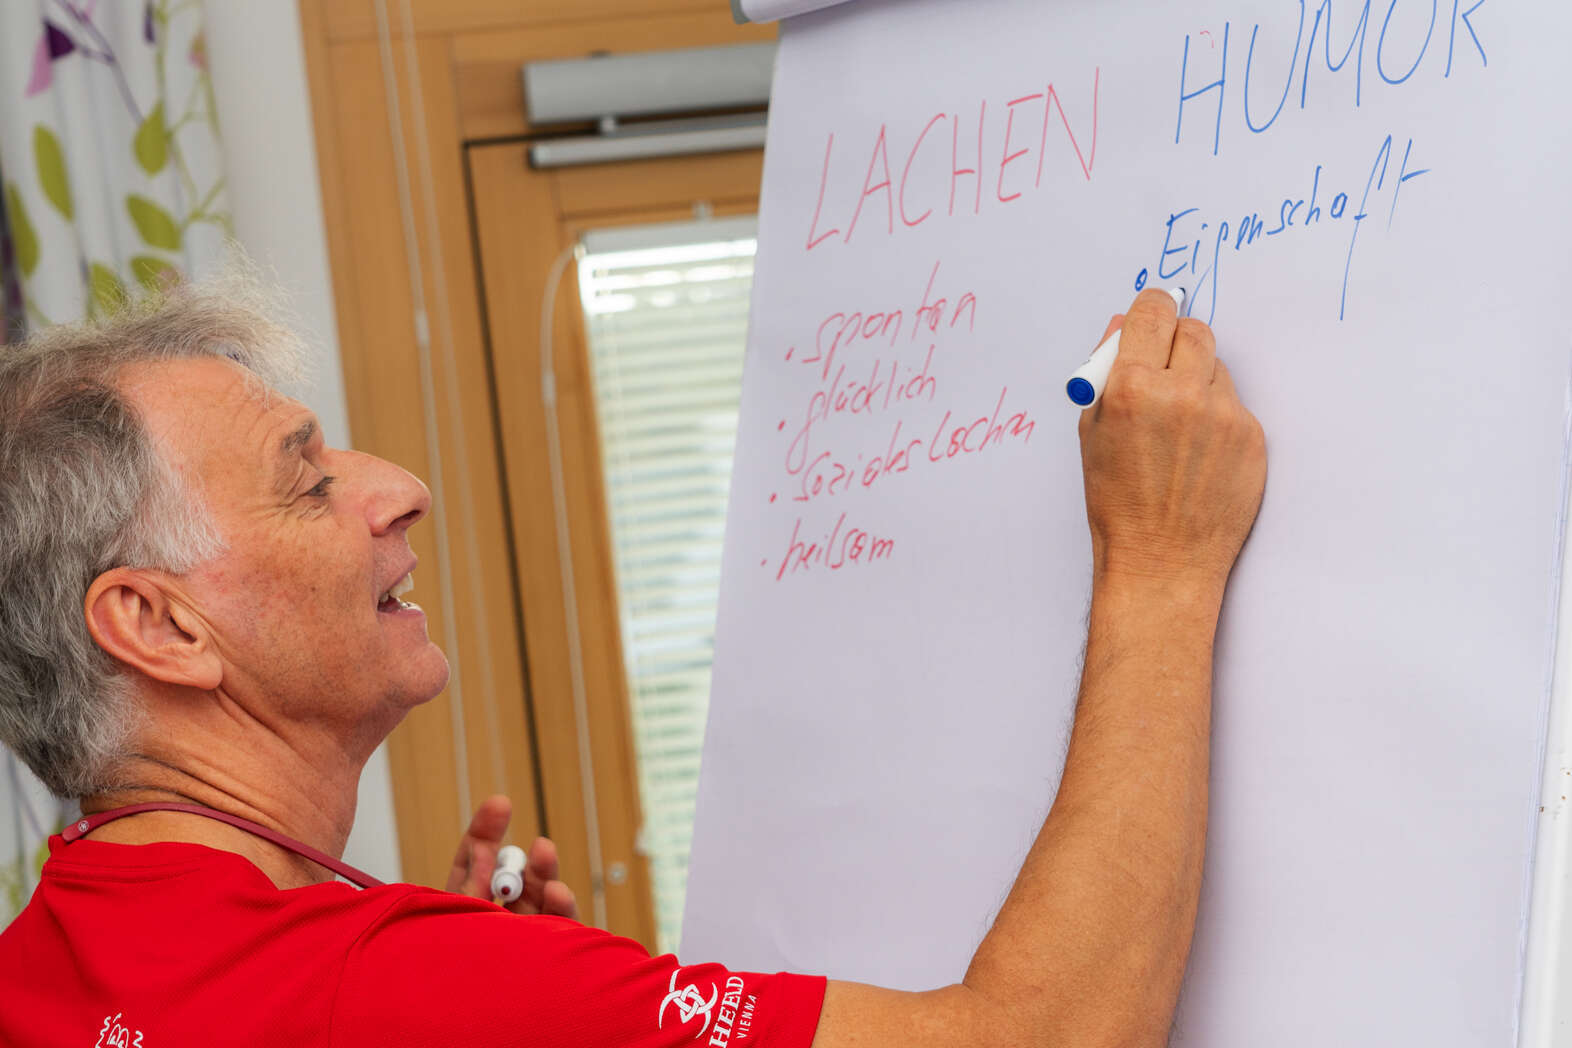 LACHEN HUMOR
• spontan
• glücklich
• soziales Lachen
• heilsam
• Eigenschaft
HEAD
VIENNA